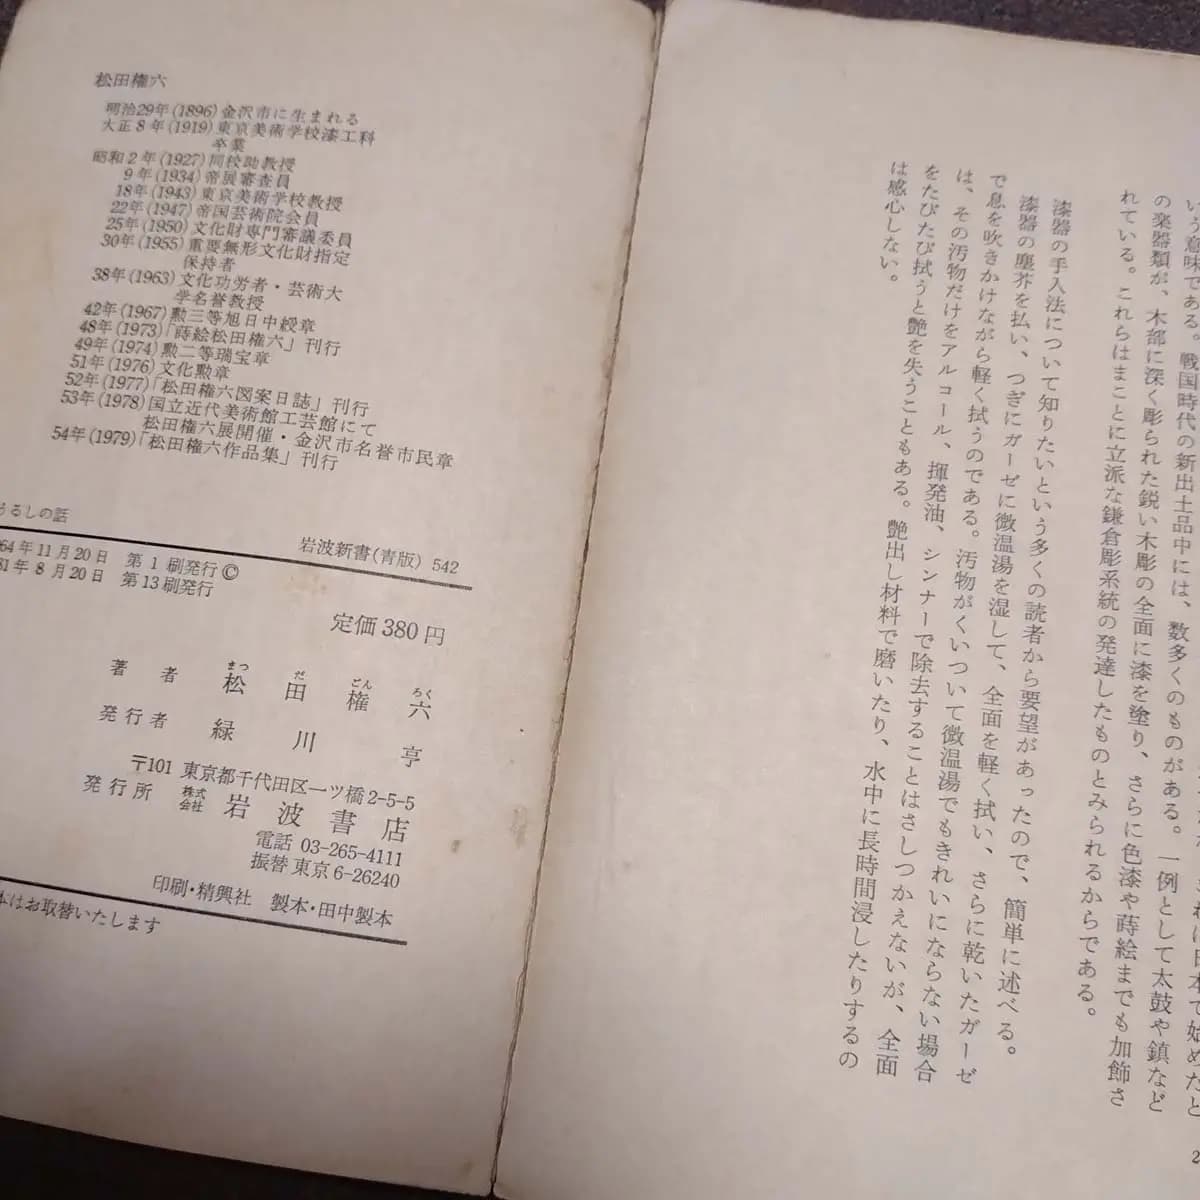 いう意味である。戦国時代の新出土品中には、数多くのものがある。一例として太鼓や鎮など
の楽器類が、木部に深く彫られた鋭い木彫の全面に漆を塗り、さらに色漆や蒔絵までも加飾さ
れている。これらはまことに立派な鎌倉彫系統の発達したものとみられるからである。
漆器の手入法について知りたいという多くの読者から要望があったので、簡単に述べる。
漆器の塵芥を払い、つぎにガーゼに微温湯を湿して、全面を軽く拭い、さらに乾いたガーゼ
で息を吹きかけながら軽く拭うのである。汚物がくいついて微温湯でもきれいにならない場合
は、その汚物だけをアルコール、揮発油、シンナーで除去することはさしつかえないが、全面
をたびたび拭うと艶を失うこともある。艶出し材料で磨いたり、水中に長時間浸したりするの
は感心しない。
松田権六
明治29年(1896)金沢市に生まれる
大正8年(1919)東京美術学校漆工科
卒業
昭和2年(1927)同校助教授
9年(1934)帝展審査員
18年(1943)東京美術学校教授
22年(1947)帝国芸術院会員
25年(1950)文化財専門審議委員
30年(1955)重要無形文化財指定
保持者
38年(1963)文化功労者・芸術大
学名誉教授
42年(1967)勲三等旭日中綬章
48年(1973)「蒔絵松田権六」刊行
49年(1974)勲二等瑞宝章
51年(1976)文化勲章
52年(1977)「松田権六図案日誌」刊行
53年(1978)国立近代美術館工芸館にて
松田権六展開催・金沢市名誉市民章
54年(1979)「松田権六作品集」刊行
うるしの話
岩波新書(青版) 542
64年11月20日 第1刷発行©
81年8月20日 第13刷発行
定価380円
著者 松田権六
まつ だ ごん ろく
発行者 緑川亨
〒101 東京都千代田区一ツ橋2-5-5
発行所 株式会社 岩波書店
電話 03-265-4111
振替 東京 6-26240
印刷・精興社 製本・田中製本
本はお取替いたします